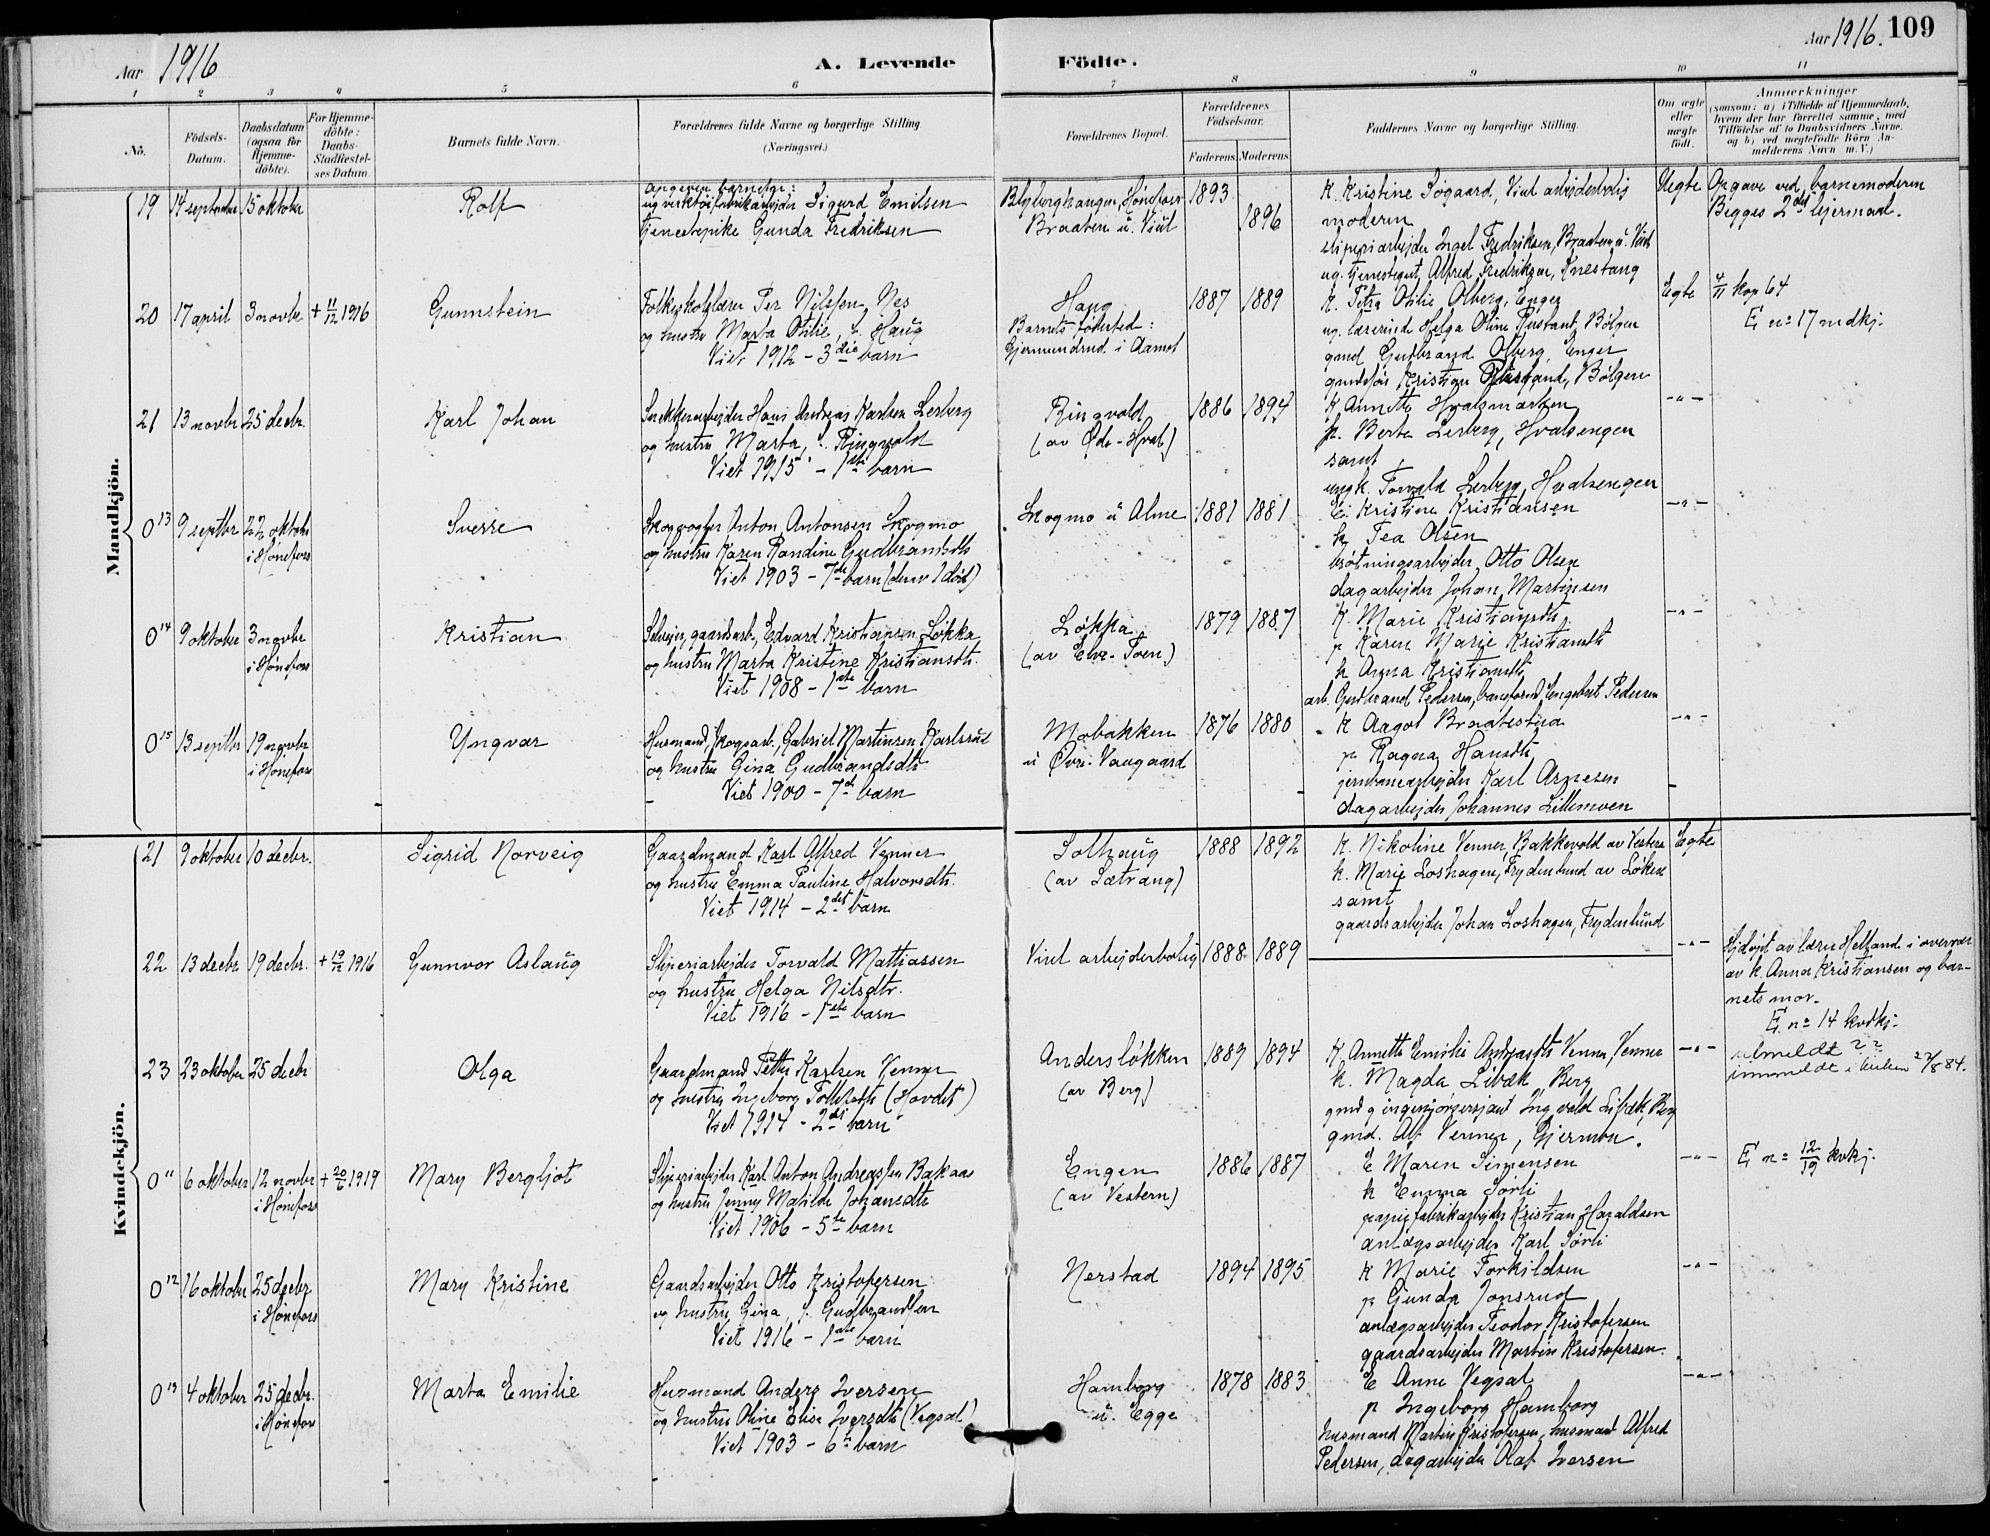 Aar 1916
A. Levende Födte.
Aar 1916. 109
1 2 3 4 5 6 7 8 9 10 11
No.
Födsels-Datum.
Daabsdatum (ogsaa for Hjemme-döbte).
For Hjemme-döbte: Daabs-Stadfæstel-ses Datum.
Barnets fulde Navn.
Forældrenes fulde Navne og borgerlige Stilling
(Næringsvei.)
Forældrenes Bopæl.
Forældrenes Födselsaar.
Faderens. Moderens.
Faddernes Navne og borgerlige Stilling.
Om ægte eller uægte født.
Anmærkninger
(saasom: a) i Tilfælde af Hjemmedaab,
hvem der har forrettet samme, med
Tilföielse af to Daabsvidners Navne.
og b) ved uægtefödte Börn An-
melderens Navn m. V.)
Mandkjön.
19 14 september 15 oktober Rolf
angiven barnefar:
ug verktøifabrikarbeider Sigurd Emilsen
tjenestepike Gunda Fredriksen
Hønefoss
Braaten u. Viul
1893
1896
K. Kristine Søgaard, Viul arbeiderbolig
moderen
sliperiarbejder Ingel Fredriksen, Braaten u. Viul
ug. tjenestegut, Alfred Fredriksen, Knestang
Uegte
Opgave ved barnemoderen
Begges 2det leiermaal.
20 17 april 3 novbr + 11/12 1916 Gunnstein
Folkeskolelærer Per Nilssen Nes
og hustru Marta Otilie, f. Haug
Viet 1912 - 3die barn
Haug
Barnets fødested:
Gjermundrud i Aamot
1887 1889
K. Petra Otilie Olberg, Enger
ug. lærerinde Helga Oline Rustand, Bølgen
gmd Gudbrand Olberg, Enger
Kristian Rustand, Bølgen
Egte
4/11 kop 64
E no 17 mdkj.
21 13 novbr 25 decbr. Karl Johan
Snekkerarbejder Hans Andreas Karlsen Lerberg
og hustru Marta, f. Ringvold
Viet 1915 - 1ste barn
Ringvold
(av Øde-Hval)
1886 1894
K Annette Hvalsmarken
p. Berta Lerberg, Hvalsengen
samt
ungk. Torvald Lerberg, Hvalsengen
-"-
0 13 9 septbr 22 oktober i Hønefoss Sverre
Skogvogter Anton Antonsen Skogmo
og hustru Karen Randine Gudbrandsdtr
Viet 1903 - 7de barn (derav 1 død)
Skogmo u Alme
1881 1881
E. Kristine Kristiansen
k Tea Olsen
brøtningsarbejder Otto Olsen
dagarbejder Johan Martinsen
-"-
0 14 9 oktober 3 novbr i Hønefoss Kristian
Selveier, gaardsarb., Edvard Kristiansen Løkka
og hustru Marta Kristine Kristiansdtr.
Viet 1908 - 1ste barn
Løkka
(av Elve-Toen)
1879 1887
K. Marie Kristiansdtr.
p Karen Marie Kristiansdtr
k Anna Kristiansdtr
arb. Gudbrand Pedersen, baneformd Engebret Pedersen
-"-
0 15 13 septbr 19 novbr i Hønefoss Yngvar
Husmand, skogsarb., Gabriel Martinsen Karlsrud
og hustru Gina Gudbrandsdtr
Viet 1900 - 7de barn
Mobakken
u Øvre-Vaagaard
1876 1880
K Aagot Braatestua
p Ragna Hansdtr
jernbanearbejder Karl Arnesen
dagarbejder Johannes Lillemoen
-"-
Kvindekjön.
21 9 oktober 10 decbr. Sigrid Norveig
Gaardmand Karl Alfred Venner
og hustru Emma Pauline Halvorsdtr.
Viet 1914 - 2det barn
Solhaug
(av Sætrang)
1888 1892
K. Nikoline Venner, Bakkevold av Vestern
k. Marie Loshagen, Frydenlund av Løken
samt
gaardsarbejder Johan Loshagen, Frydenlund
Egte
22 13 decbr 19 decbr. + 19/12 1916 Gunnvor Aslaug
Sliperiarbejder Torvald Mattiassen
og hustru Helga Nilsdtr.
Viet 1916 - 1ste barn
Viul arbejderbolig
1888 1889
-"-
Hjdøpt av lærer Helland i overvær
av k. Anna Kristiansen og bar-
nets mor.
E. no 14 kvdkj.
23 23 oktober 25 decbr Olga
Gaardmand Petter Karlsen Venner
og hustru Ingeborg Tollefsdtr (Hovdet)
Viet 1914 - 2det barn
Andersløkken
(av Berg)
1889 1894
K. Annette Emilie Andreasdtr Venner, Venner
k. Magda Libæk, Berg
gmd g ingeniørsersjant Ingvald Libæk, Berg
gmd. Alf Venner, Gjermbu.
-"-
utmeldt ??
innmeldt i kirken 22/8 84.
0 11 6 oktober 12 novbr i Hønefoss + 20/6 1919 Mary Bergljot
Sliperiarbejder Karl Anton Andreassen Bakaas
og hustru Jenny Matilde Johansdtr
Viet 1906 - 5te barn
Engen
(av Vestern)
1886 1887
E Maren Simensen
k Emma Sørli
papirfabrikarbejder Kristian Haraldsen
anlægsarbejder Karl Sørli
-"-
E no 12/19 kvkj.
0 12 16 oktober 25 decbr i Hønefoss Mary Kristine
Gaardsarbejder Otto Kristofersen
og hustru Gina, f. Gudbrandsen
Viet 1916 - 1ste barn
Nerstad
1894 1895
K Marie Torkildsen
p Gunda Jonsrud
anlægsarbejder Teodor Kristofersen
gaardsarbejder Martin Kristofersen.
-"-
0 13 4 oktober 25 decbr. i Hønefoss Marta Emilie
Husmand Anders Iversen
og hustru Oline Elise Iversdtr (Vegsal)
Viet 1903 - 6te barn
Hamborg
u. Egge
1878 1883
E Anne Vegsal
p Ingeborg Hamborg
husmand Martin Kristofersen, husmand Alfred
Pedersen, dagarbejder Olaf Iversen
-"-